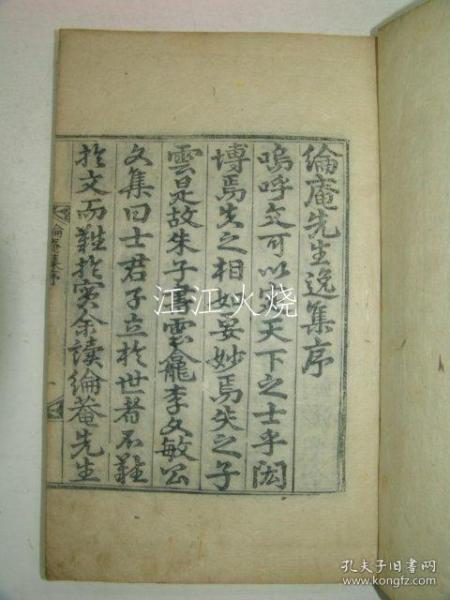 綸庵先生逸集序
嗚呼文可以天下之士乎閎
博焉失之相如要妙焉失之子
雲是故朱子書雲龕李文敏公
文集曰士君子立於世者不難
於文而難於實余讀綸菴先生
江江火烧
孔夫子旧书网
www.kongfz.com